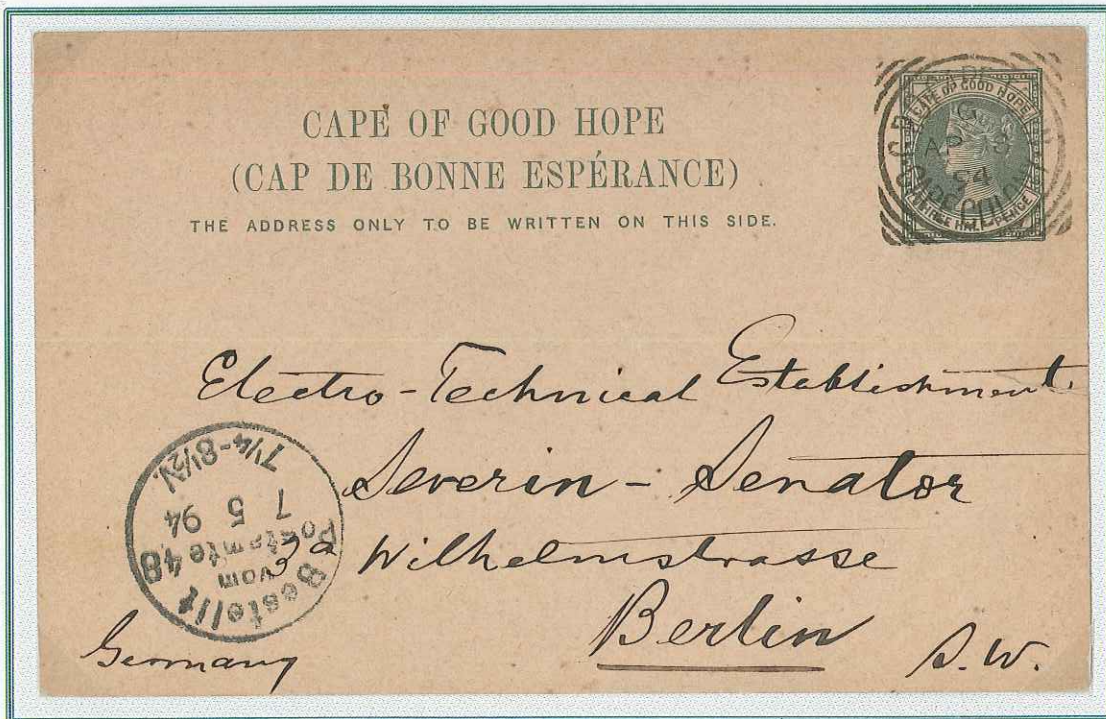 CAPE OF GOOD HOPE
(CAP DE BONNE ESPÉRANCE)
THE ADDRESS ONLY TO BE WRITTEN ON THIS SIDE.
CAPE OF GOOD HOPE
AP 18
94
PENCE
Electro-Technical Establishment.
Severin - Senator
3a Wilhelmstrasse
Berlin
S.W.
Germany
Bestellt
vom
Postamte 48
7 5 94
7¼-8½V.